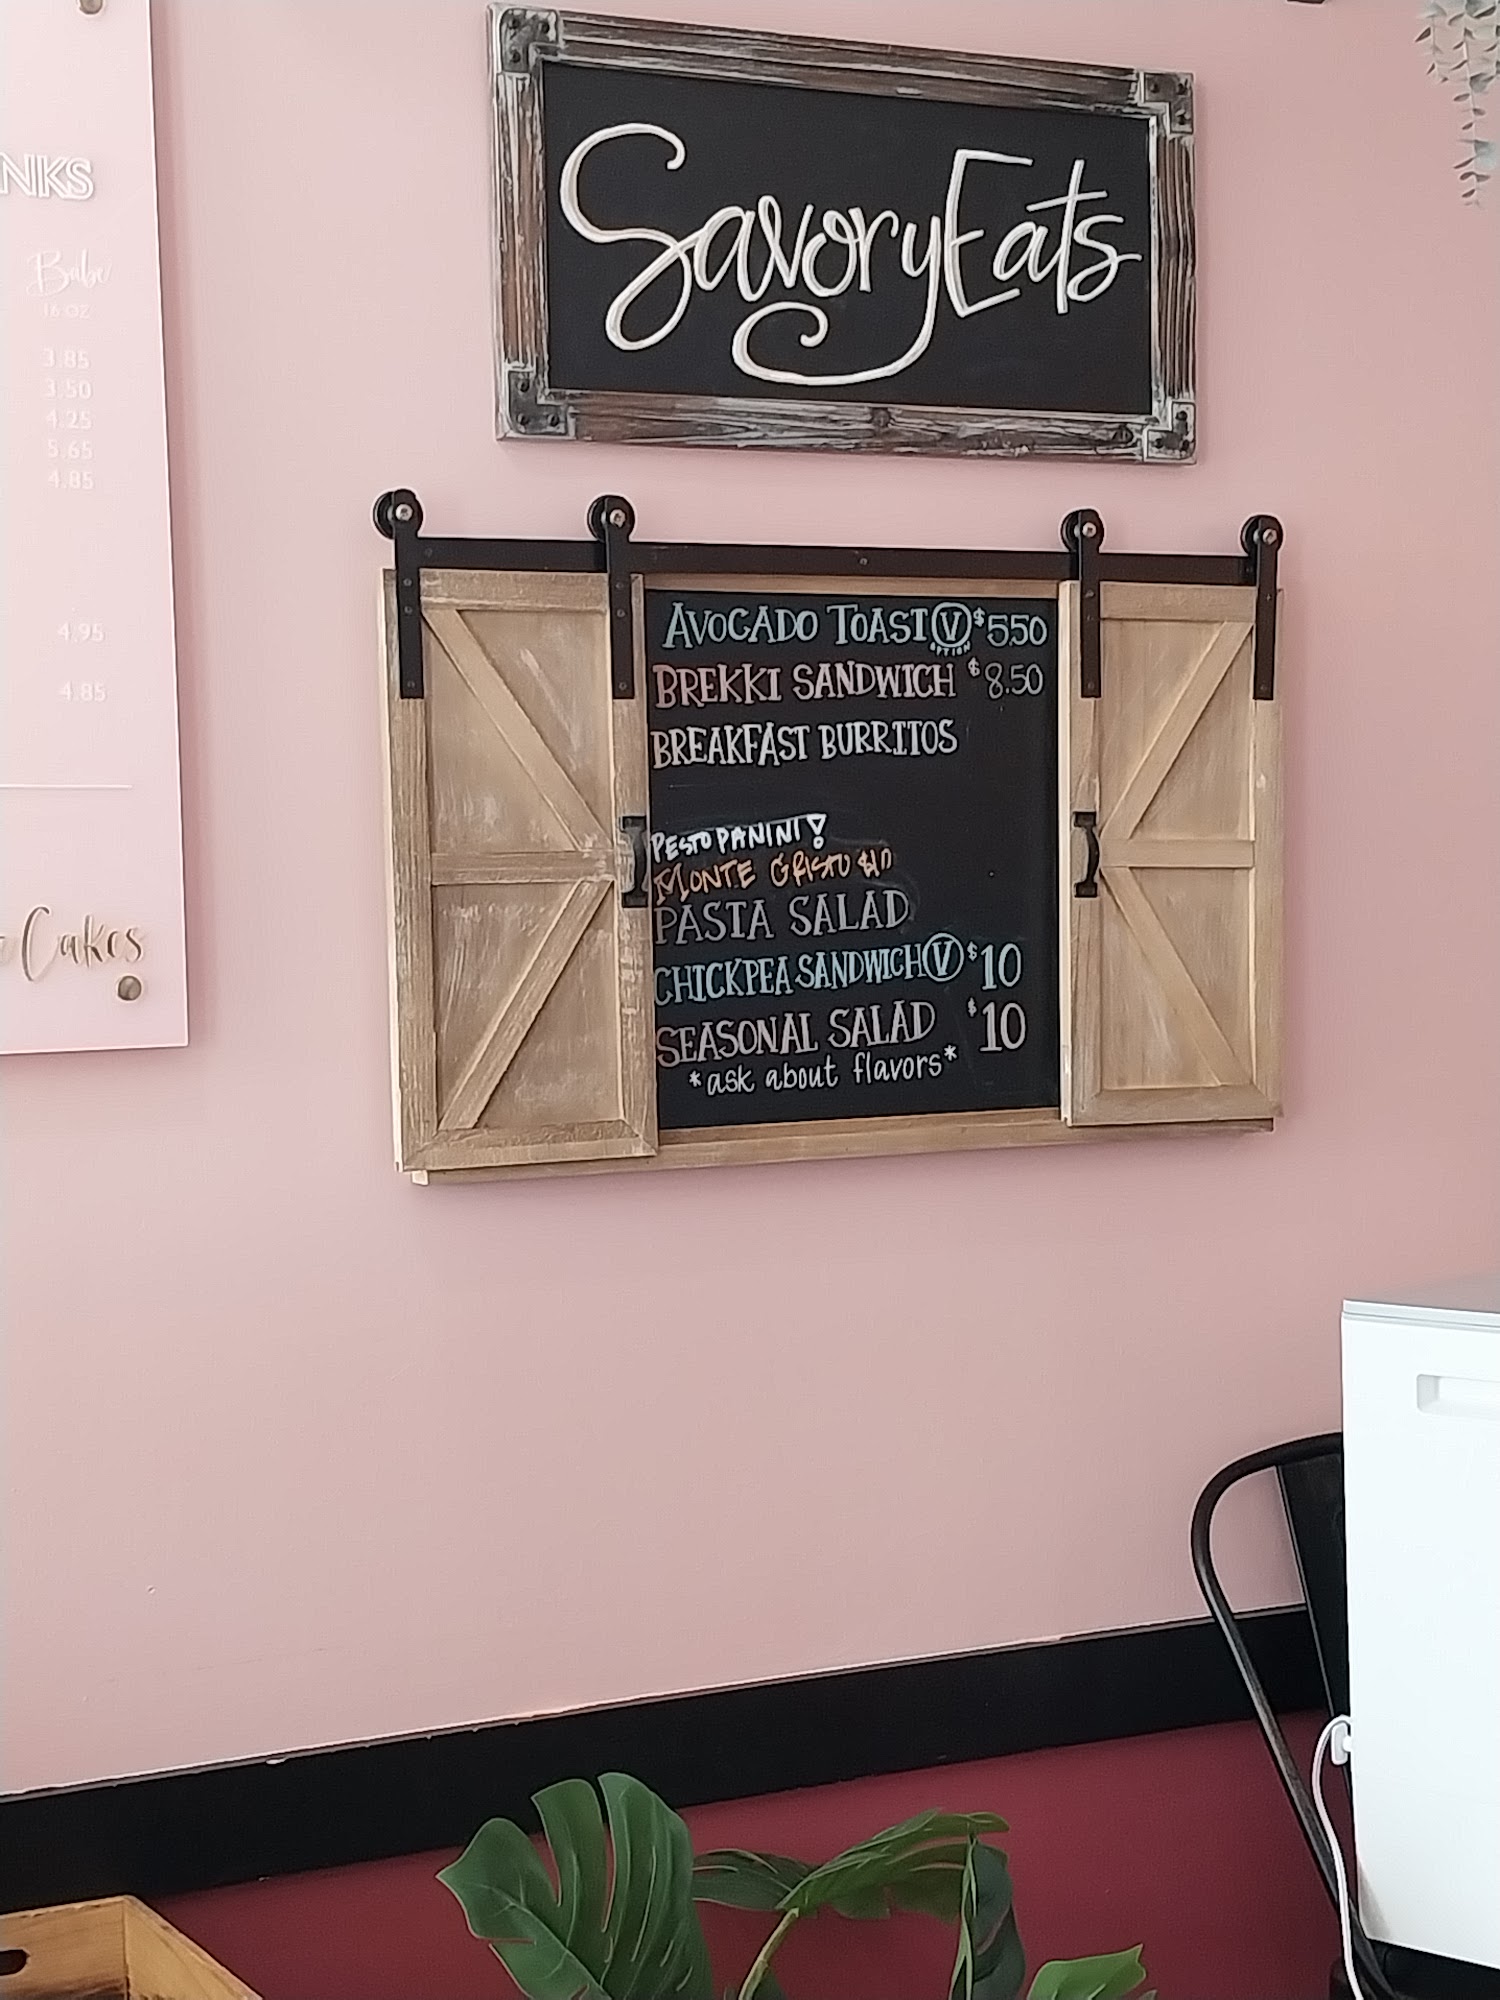 NKS
Babe
16 OZ
3.85
3.50
4.25
5.65
4.85
4.95
4.85
Cakes
Savory Eats
AVOCADO TOAST V $5.50
OPTION
BREKKI SANDWICH $8.50
BREAKFAST BURRITOS
PESTO PANINI!
MONTE CRISTO
PASTA SALAD
CHICKPEA SANDWICH V $10
SEASONAL SALAD $10
*ask about flavors*